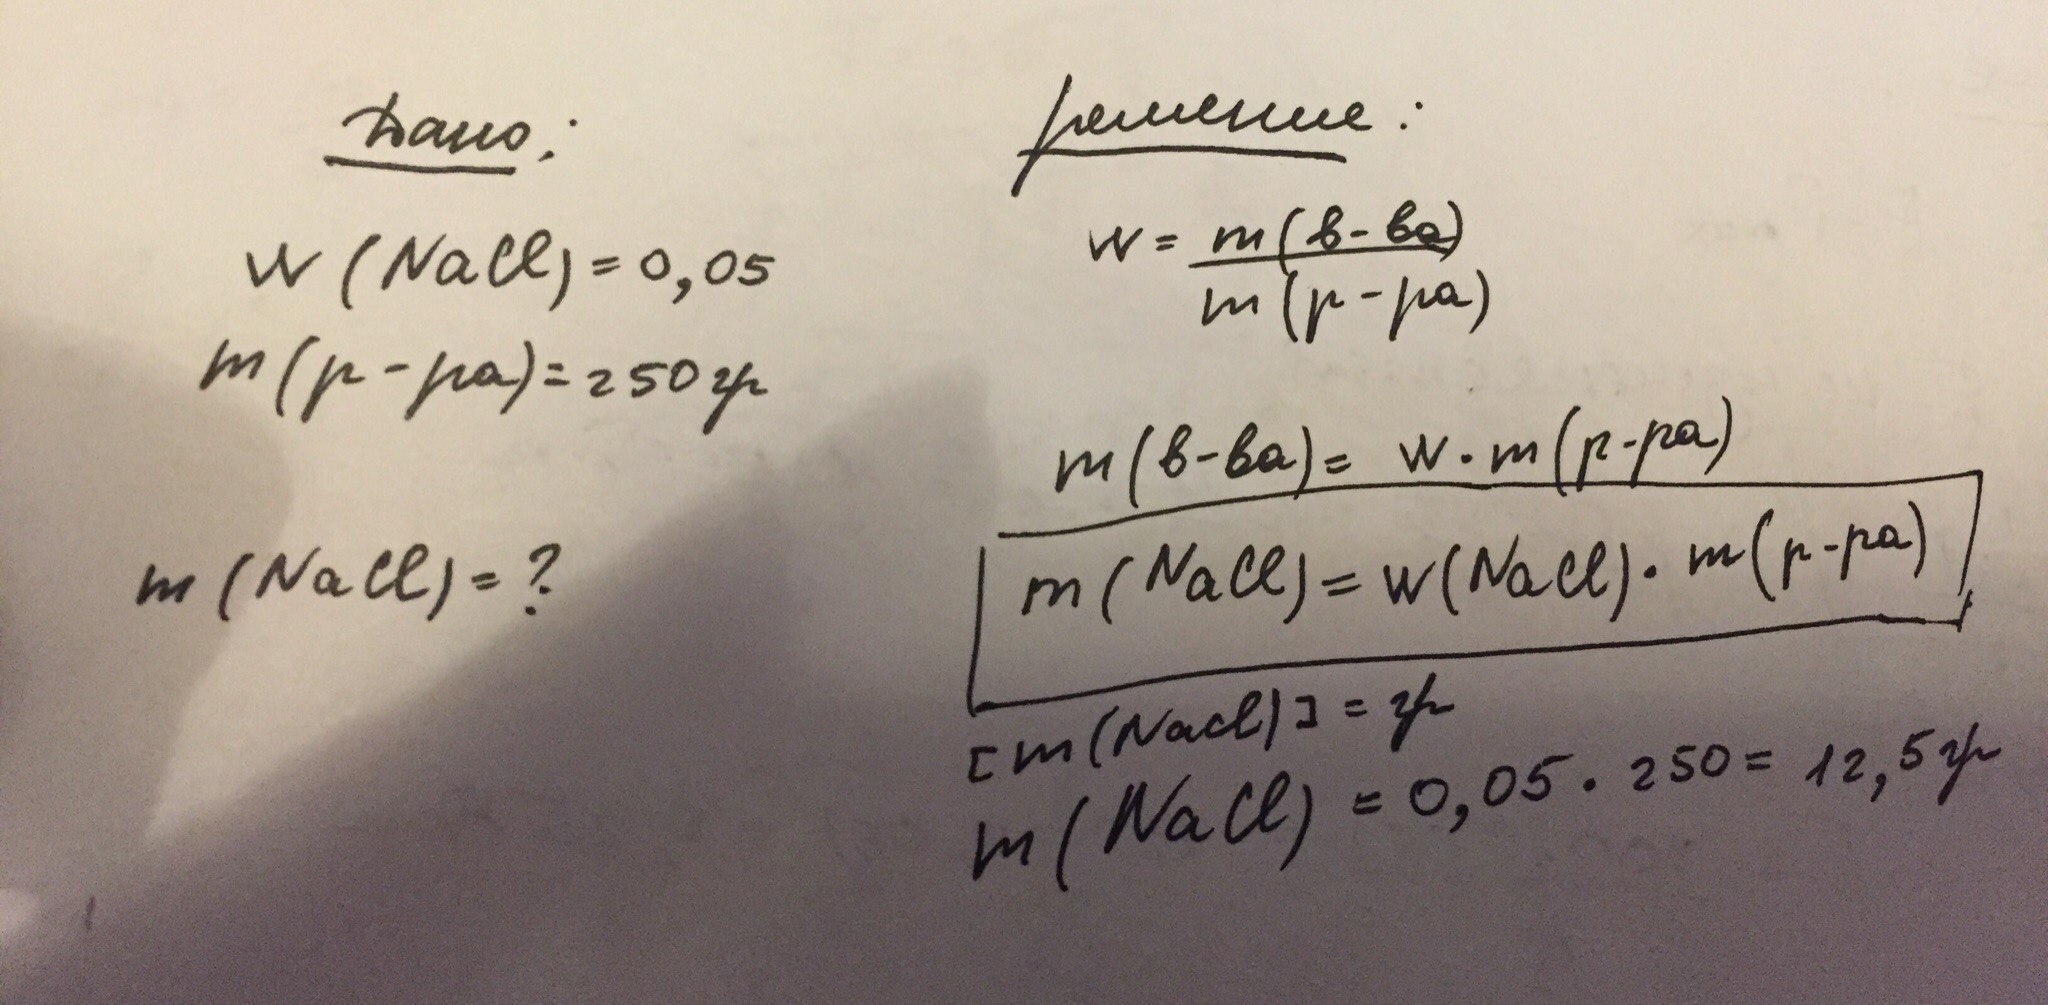 Дано:
w (NaCl) = 0,05
m (р-ра) = 250 гр
m (NaCl) = ?
решение:
w = m(в-ва)
m(р-ра)
m(в-ва) = w · m(р-ра)
m(NaCl) = w(NaCl) · m(р-ра)
[m(NaCl)] = гр
m(NaCl) = 0,05 · 250 = 12,5 гр